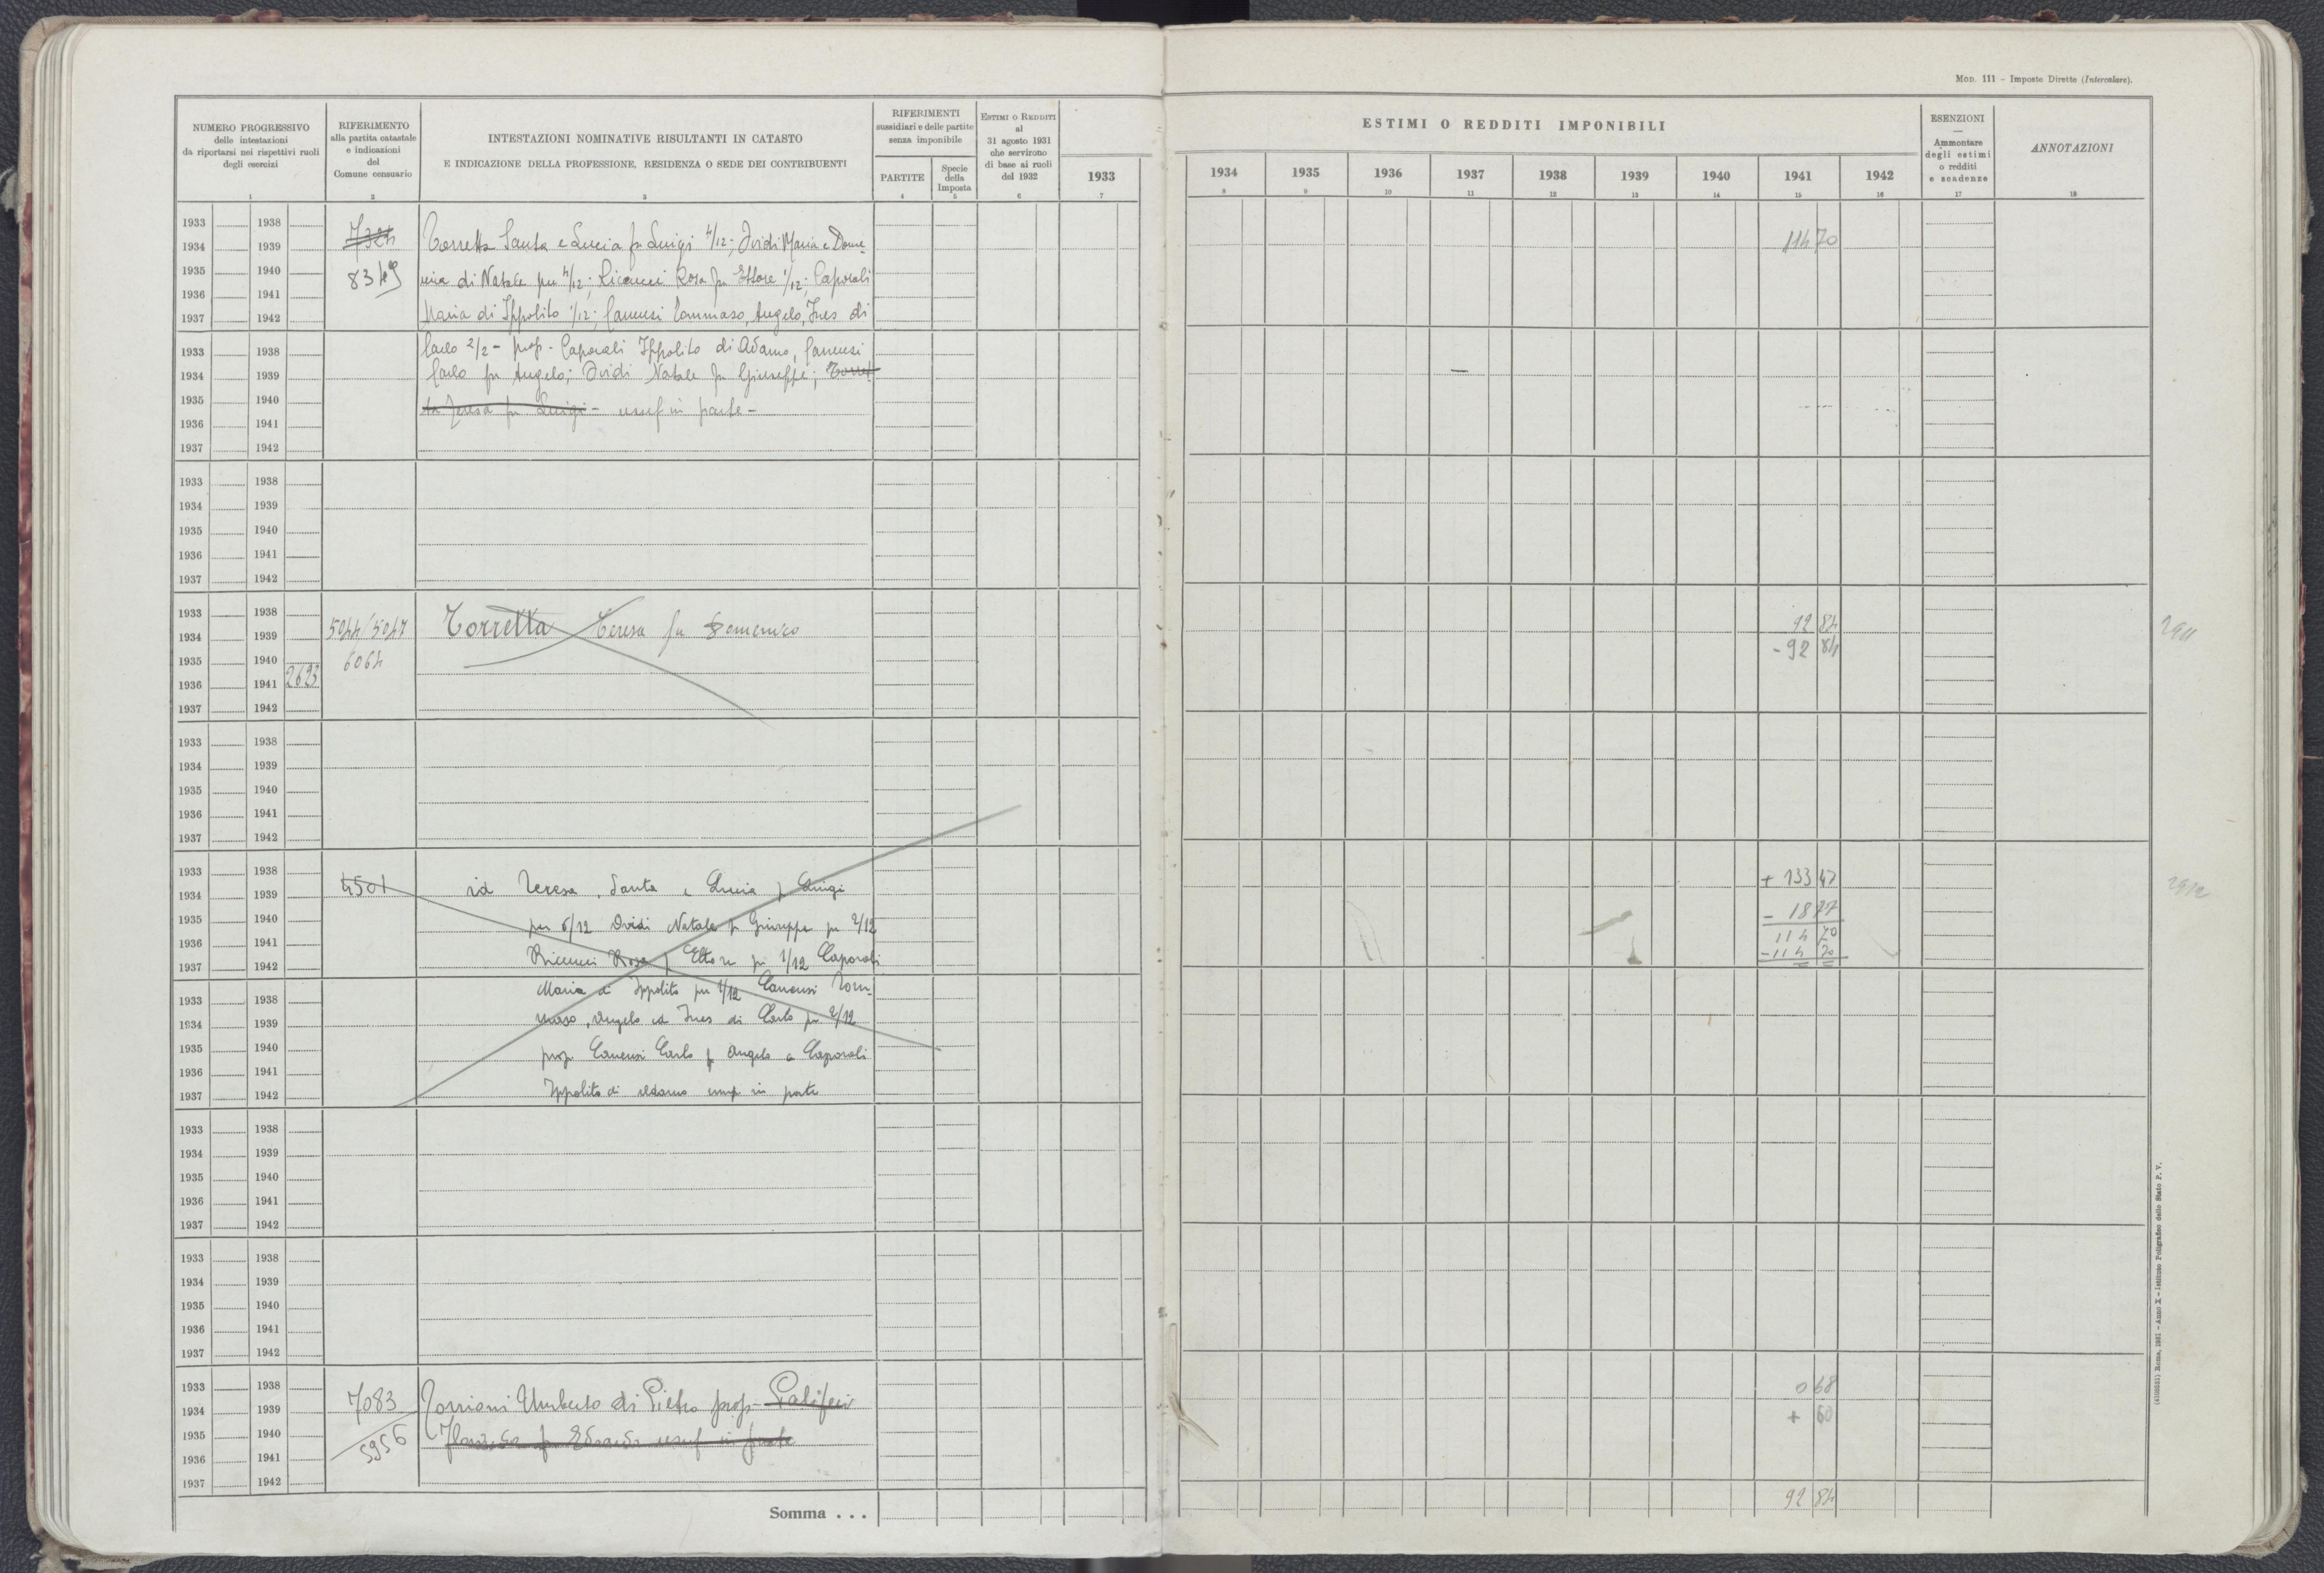 Mod. 111 - Imposte Dirette (Intercalare).
NUMERO PROGRESSIVO
delle intestazioni
da riportarsi nei rispettivi ruoli
degli esercizi
1
RIFERIMENTO
alla partita catastale
e indicazioni
del
Comune censuario
2
INTESTAZIONI NOMINATIVE RISULTANTI IN CATASTO
E INDICAZIONE DELLA PROFESSIONE, RESIDENZA O SEDE DEI CONTRIBUENTI
3
RIFERIMENTI
sussidiari e delle partite
senza imponibile
PARTITE
4
Specie
della
Imposta
5
ESTIMI O REDDITI
al
31 agosto 1931
che servirono
di base ai ruoli
del 1932
6
1933
7
ESTIMI O REDDITI IMPONIBILI
1934 1935 1936 1937 1938 1939 1940 1941 1942
8 9 10 11 12 13 14 15 16
ESENZIONI
—
Ammontare
degli estimi
o redditi
e scadenze
17
ANNOTAZIONI
18
1933 1938
1934 1939 7324 Torretta Santa e Lucia fu Luigi 4/12; Ovidi Maria e Dome- 114 70
1935 1940 8349 nica di Natale per 4/12; Ricucci Rosa fu Ettore 1/12; Caporali
1936 1941
1937 1942 Maria di Ippolito 1/12; Canensi Tommaso, Angelo, Ines di
1933 1938 Carlo 2/2 - prop - Caporali Ippolito di Adamo, Canensi
1934 1939 Carlo fu Angelo; Ovidi Natale fu Giuseppe; Torret
1935 1940 ta Teresa fu Luigi - usuf in parte -
1936 1941
1937 1942
1933 1938
1934 1939
1935 1940
1936 1941
1937 1942
1933 1938
1934 1939 5044/5047 Torretta Teresa fu Domenico 92 84 2911
1935 1940 6064 - 92 84
1936 1941 2623
1937 1942
1933 1938
1934 1939
1935 1940
1936 1941
1937 1942
1933 1938 + 133 47
1934 1939 4501 id Teresa, Santa e Lucia f Luigi 2912
1935 1940 per 6/12 Ovidi Natale f Giuseppe per 2/12 - 18 77
1936 1941 114 70
1937 1942 Ricucci Rosa f Ettore per 1/12 Caporali - 114 70
1933 1938 Maria di Ippolito per 1/12 Canensi Tom-
1934 1939 maso, Angelo ed Ines di Carlo per 2/12
1935 1940 prop Canensi Carlo f Angelo e Caporali
1936 1941
1937 1942 Ippolito di Adamo usuf in parte
1933 1938
1934 1939
1935 1940
1936 1941
1937 1942
1933 1938
1934 1939
1935 1940
1936 1941
1937 1942
1933 1938 0 68
1934 1939 7083 Torrioni Umberto di Pietro prop - + 60
1935 1940 5956 fu Edoardo usuf in parte
1936 1941
1937 1942
Somma . . . 92 84
(4100331) Roma, 1931 - Anno X - Istituto Poligrafico dello Stato P. V.